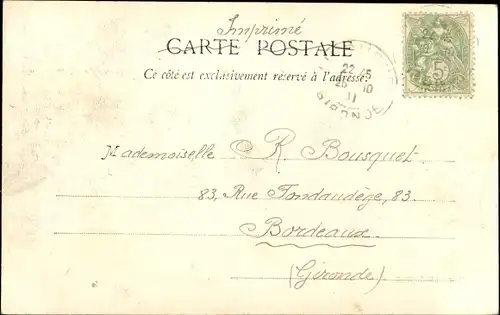 Imprimé
CARTE POSTALE
Ce côté est exclusivement réservé à l'adresse.
22 5
10
11
GIRONDE
5
Mademoiselle R. Bousquet
83, Rue Fondaudège, 83
Bordeaux
(Gironde)